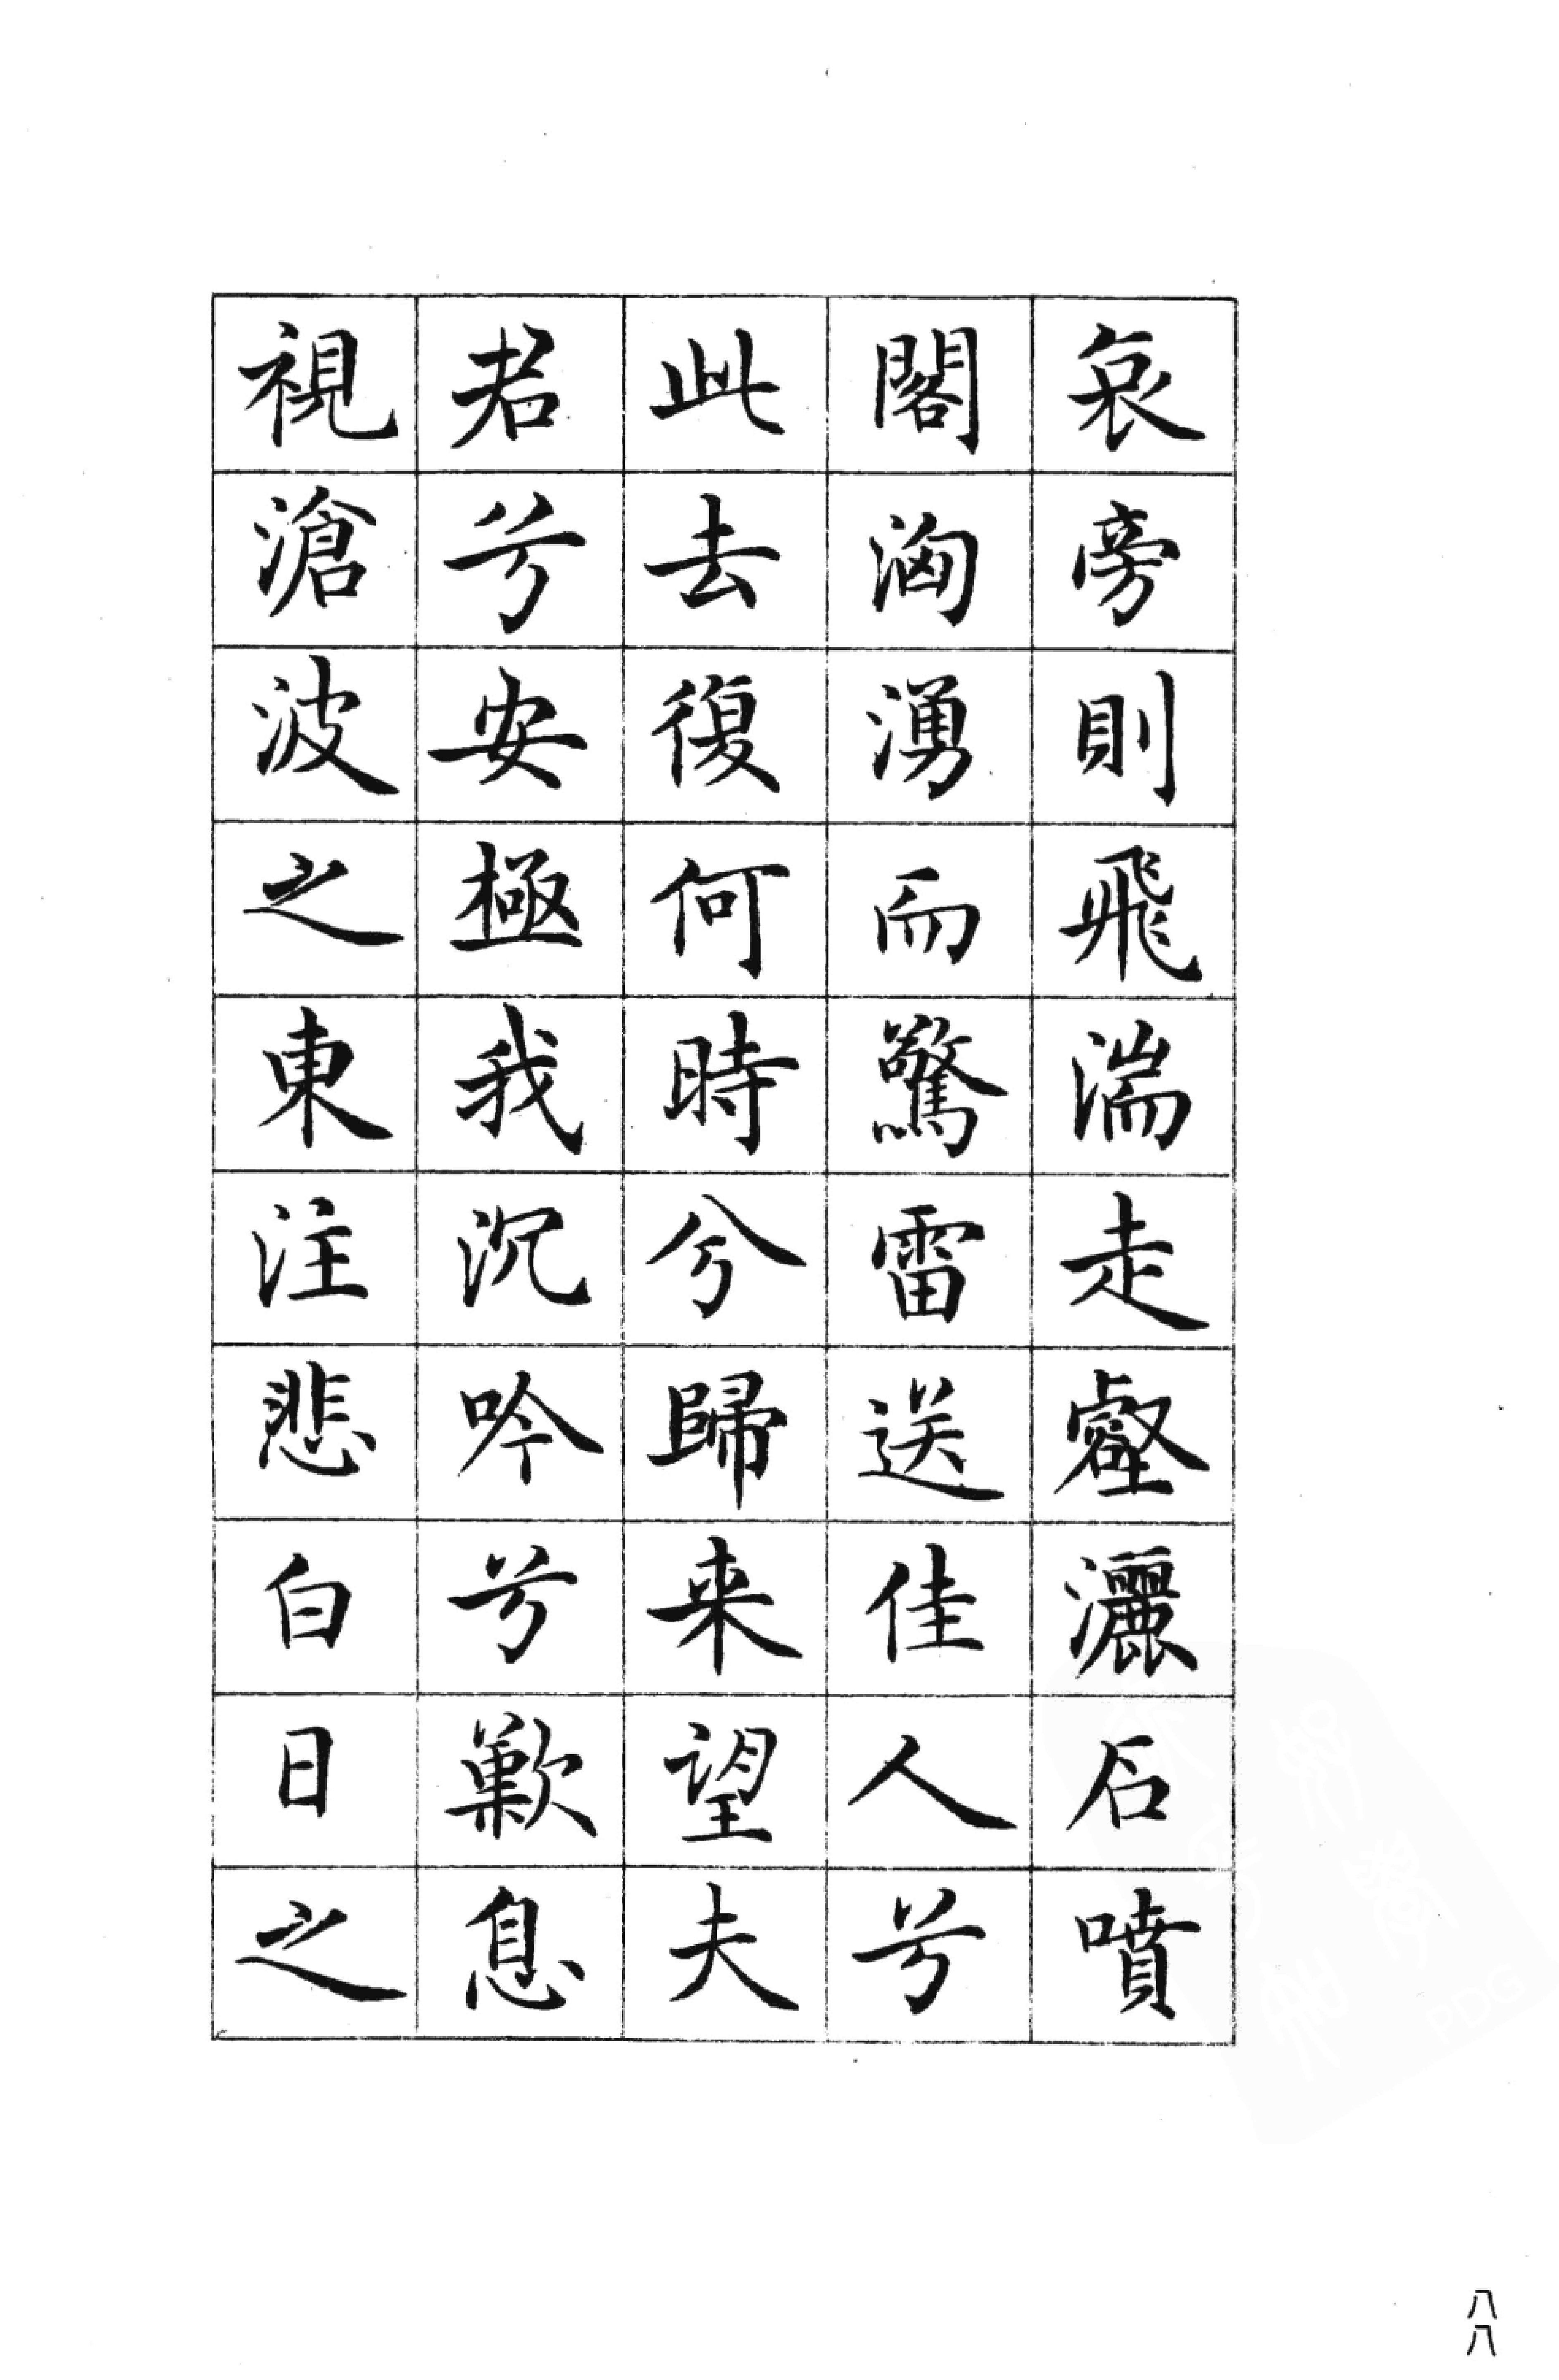 哀旁則飛湍走壑灑石噴
閣洶湧而驚雷送佳人兮
此去復何時兮歸来望夫
君兮安極我沉吟兮歎息
視滄波之東注悲白日之
八八